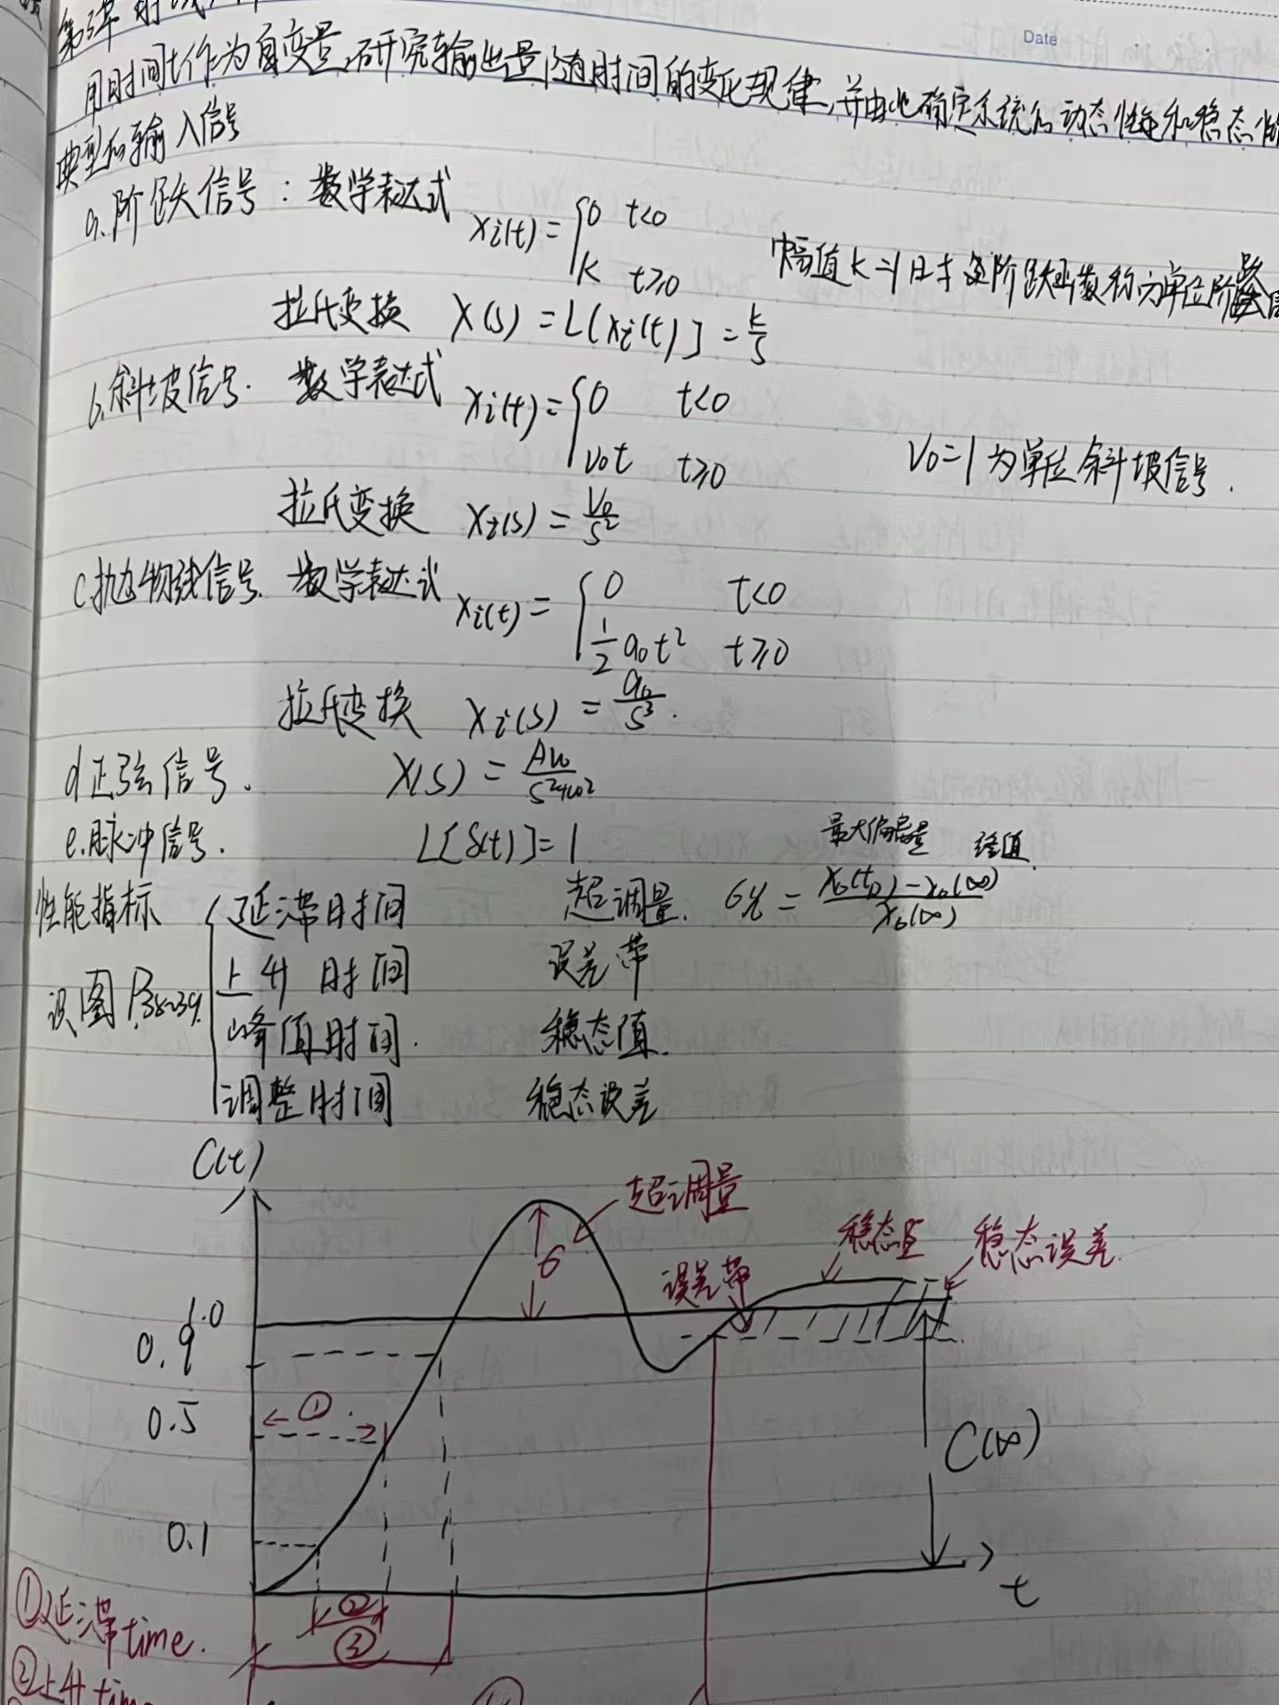 第3章 时域
Date
用时间t作为自变量,研究输出量随时间的变化规律,并由此确定系统的动态性能和稳态性
典型的输入信号
a.阶跃信号: 数学表达式 xi(t)={0 t<0
K t≥0
幅值K=1时 阶跃函数称为单位阶
拉氏变换 X(s)=L[xi(t)]=K/s
b.斜坡信号. 数学表达式 xi(t)={0 t<0
v0t t≥0
V0=1为单位斜坡信号.
拉氏变换 Xi(s)=V0/s²
c抛物线信号. 数学表达式 xi(t)={0 t<0
1/2 a0t² t≥0
拉氏变换 Xi(s)=a0/s³.
d正弦信号. X(s)=Aω/s²+ω²
e.脉冲信号. L[δ(t)]=1
最大偏离量 终值
性能指标 {延滞时间 超调量. σ%=x0(tp)-x0(∞)/x0(∞)
识图P38~39. 上升时间 误差带
峰值时间. 稳态值.
调整时间 稳态误差
C(t)
超调量
稳态值
稳态误差.
误差带
σ
1.0
0.9
①
0.5
C(∞)
0.1
t
②
③
①延滞time.
②上升time